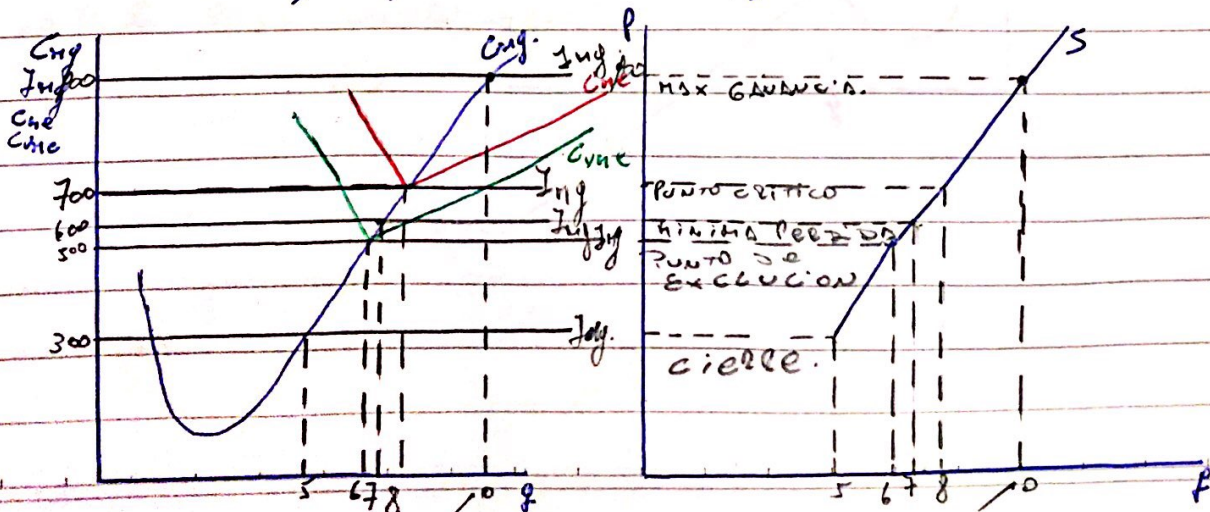 Cmg
Img
Cme
Cvme
700
600
500
300
Cmg.
Img
Cme
Cvme
Img
Img Img
Img.
5 6 7 8 10 q
P
S
MAX GANANCIA.
PUNTO CRITICO
MINIMA PERDIDA
PUNTO DE
EXCLUCION
CIERRE.
5 6 7 8 10